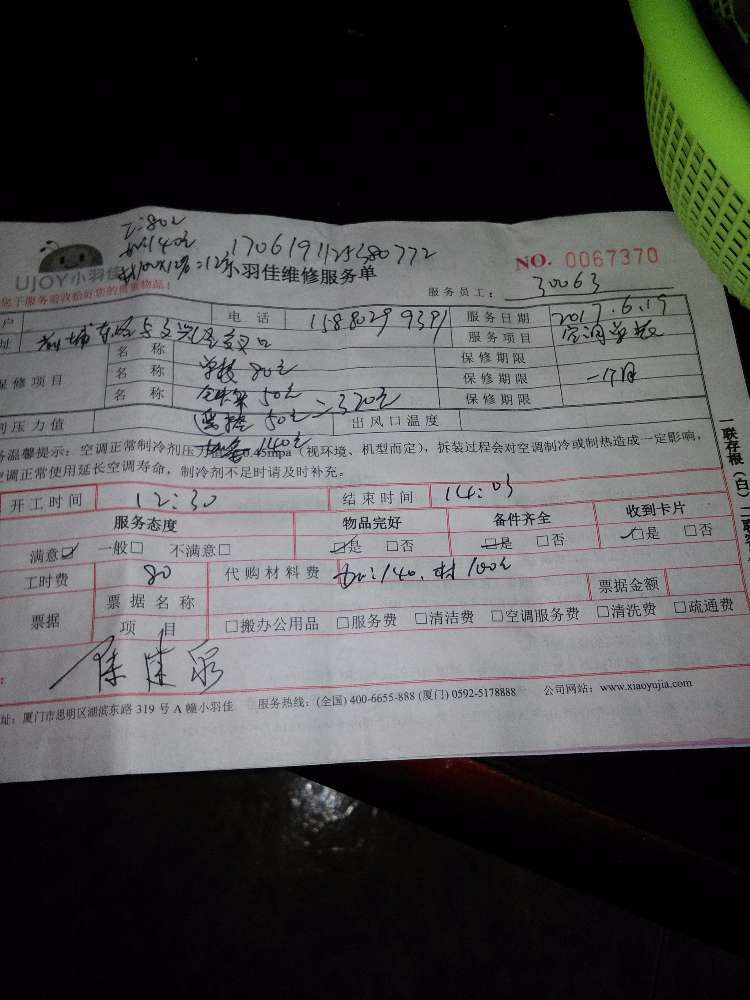 工:80元
加:140元
170619112580772
材100×12%=12元
UJOY小羽佳
小羽佳维修服务单
NO. 0067370
您于服务前收拾好您的贵重物品!
服务员工: 30063
户
电 话
服务日期 2017.6.19
址
服务项目
名 称
学校 80元
保修期限
保修项目
名 称
50元
保修期限
一个月
名 称
遥控 50元
=320元
保修期限
剂压力值
140元
出风口温度
务温馨提示:空调正常制冷剂压力 0.45mpa(视环境、机型而定),拆装过程会对空调制冷或制热造成一定影响,
空调正常使用延长空调寿命,制冷剂不足时请及时补充。
开工时间 12:30 结束时间 14:03
服务态度 物品完好 备件齐全 收到卡片
满意☑ 一般□ 不满意□ ☑是 □否 ☑是 □否 ☑是 □否
工时费 80 代购材料费 加:140. 材100元
票据 票据名称 票据金额
项 目 □搬办公用品 □服务费 □清洁费 □空调服务费 □清洗费 □疏通费
址:厦门市思明区湖滨东路 319 号 A 幢小羽佳 服务热线:(全国) 400-6655-888 (厦门) 0592-5178888 公司网站:www.xiaoyujia.com
一联存根(白)二联客